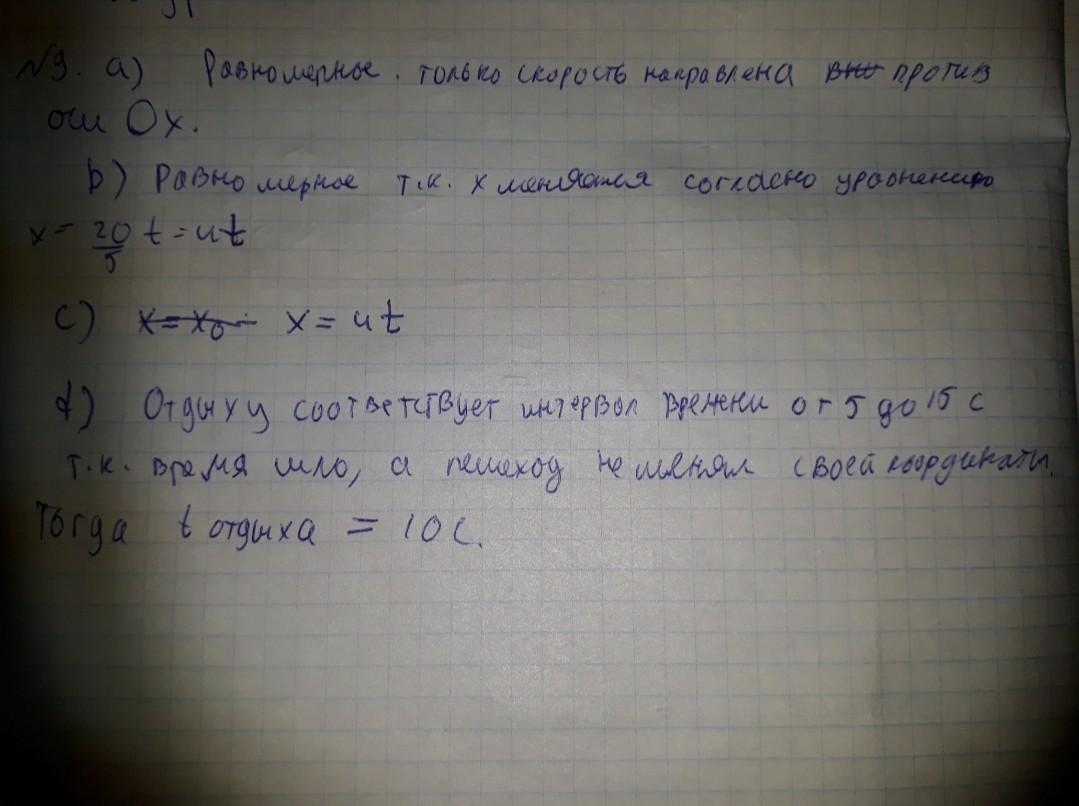 №9. а) Равномерное. только скорость направлена вни против
оси Ox.
b) Равномерное т.к. x меняется согласно уравнению
x = 20/5 t = 4t
c) x = x₀ x = 4t
d) Отдыху соответствует интервал времени от 5 до 15 с
т.к. время шло, а пешеход не менял своей координаты.
Тогда t отдыха = 10 с.